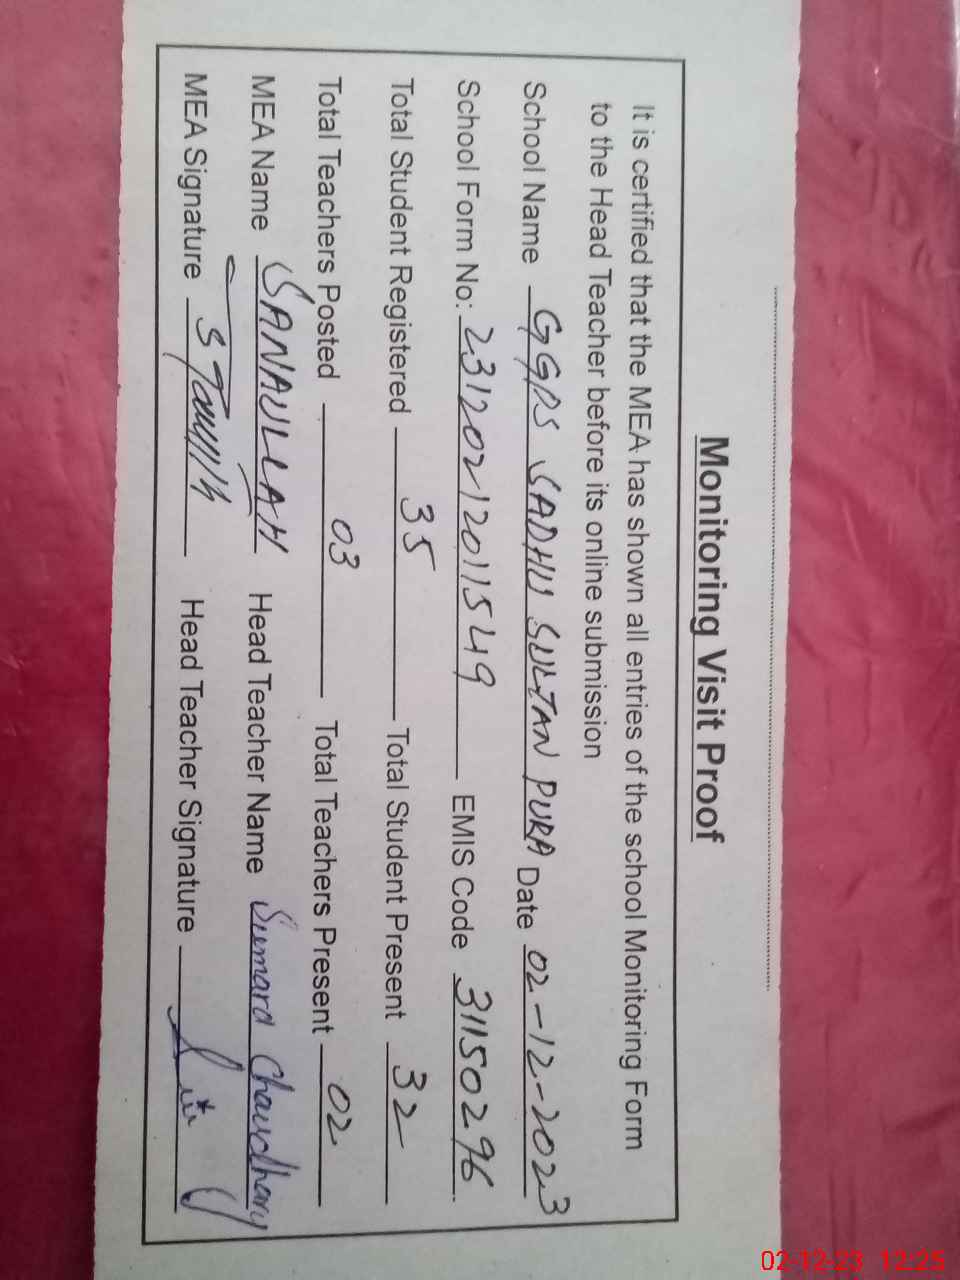 Monitoring Visit Proof
It is certified that the MEA has shown all entries of the school Monitoring Form
to the Head Teacher before its online submission
School Name GGPS SADHU SULTAN PURA Date 02-12-2023
School Form No: 23120212011549 EMIS Code 31150296
Total Student Registered 35 Total Student Present 32
Total Teachers Posted 03 Total Teachers Present 02
MEA Name SANAULLAH Head Teacher Name Chaudhary
MEA Signature Head Teacher Signature
02-12-23 12:25